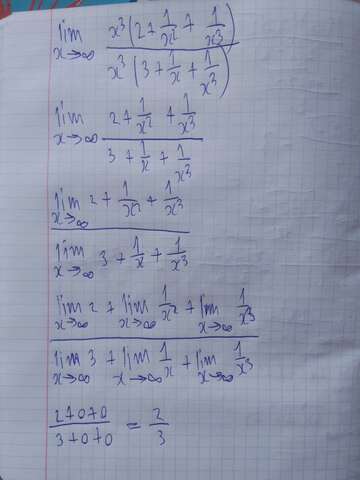 lim x→∞ x³(2 + 1/x² + 1/x³) / x³(3 + 1/x + 1/x³)
lim x→∞ (2 + 1/x² + 1/x³) / (3 + 1/x + 1/x³)
lim x→∞ 2 + 1/x² + 1/x³
lim x→∞ 3 + 1/x + 1/x³
lim x→∞ 2 + lim x→∞ 1/x² + lim x→∞ 1/x³
lim x→∞ 3 + lim x→∞ 1/x + lim x→∞ 1/x³
(2+0+0) / (3+0+0) = 2/3